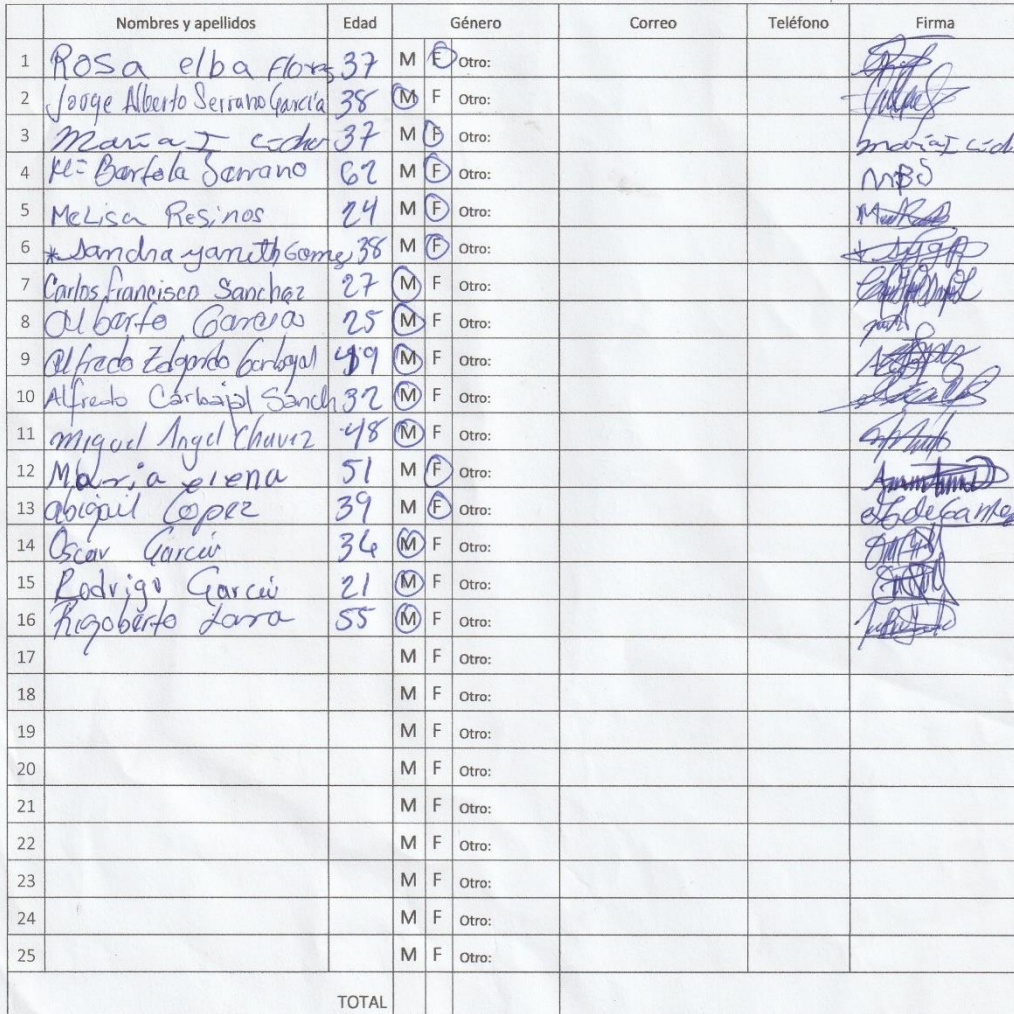 Nombres y apellidos Edad Género Correo Teléfono Firma
1 Rosa elba Flores 37 M F Otro:
2 Jorge Alberto Serrano García 38 M F Otro:
3 María I 37 M F Otro: María I
4 Bartola Serrano 62 M F Otro: MBS
5 MeLisa Resinos 24 M F Otro:
6 * Sandra yaneth Gome 38 M F Otro:
7 Carlos Francisco Sanchez 27 M F Otro:
8 Alberto Garcia 25 M F Otro:
9 Alfredo Edgardo Carbajal 49 M F Otro:
10 Alfredo Carbajal Sanch 32 M F Otro:
11 Miguel Angel Chavez 48 M F Otro:
12 Maria elena 51 M F Otro:
13 abigail Lopez 39 M F Otro:
14 Oscar Garcia 36 M F Otro:
15 Rodrigo Garcia 21 M F Otro:
16 Rigoberto Lara 55 M F Otro:
17 M F Otro:
18 M F Otro:
19 M F Otro:
20 M F Otro:
21 M F Otro:
22 M F Otro:
23 M F Otro:
24 M F Otro:
25 M F Otro:
TOTAL